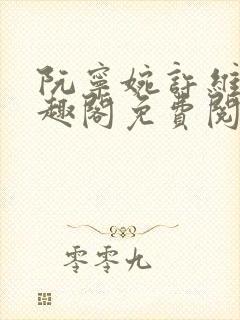 阮寧婉許維
趣閣免費閱
零零九